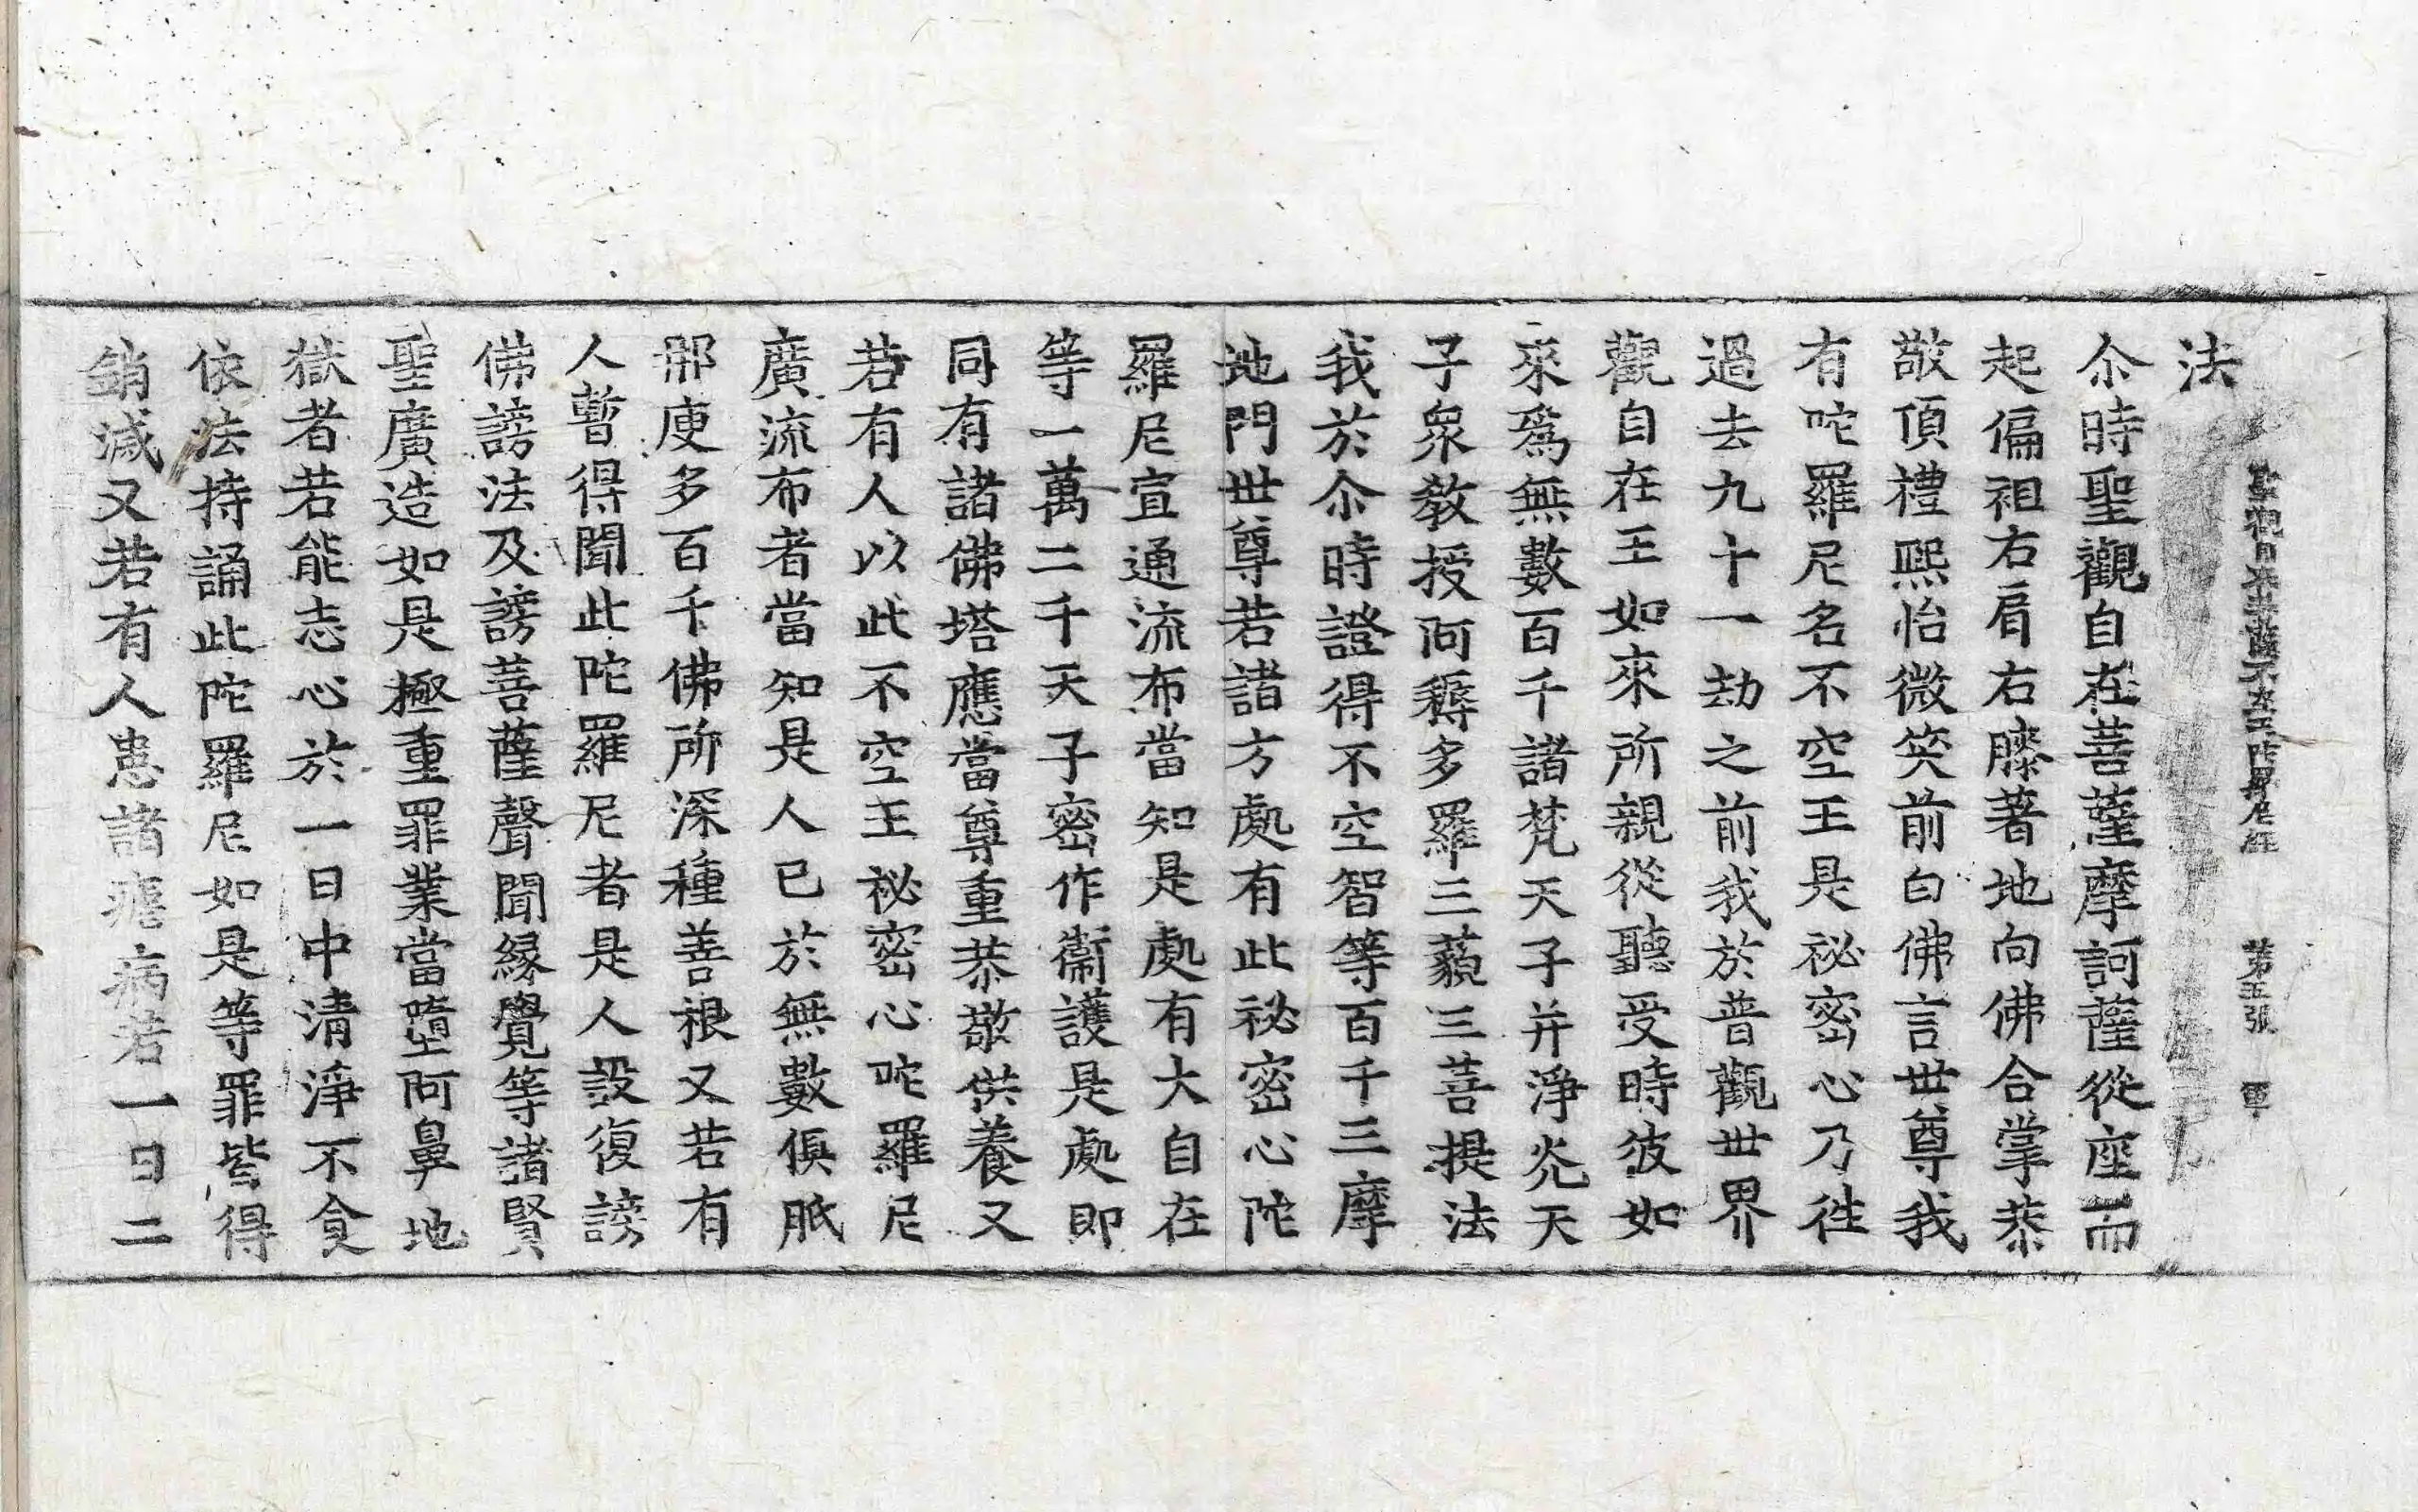 法
聖觀自在菩薩不空王陁羅尼經 第五張 軍
尒時聖觀自在菩薩摩訶薩從座而
起偏袒右肩右膝著地向佛合掌恭
敬頂禮熙怡微笑前白佛言世尊我
有咜羅尼名不空王是祕密心乃徃
過去九十一劫之前我於普觀世界
觀自在王如來所親從聽受時彼如
來爲無數百千諸梵天子并淨光天
子衆教授阿耨多羅三藐三菩提法
我於尒時證得不空智等百千三摩
地門世尊若諸方處有此祕密心陁
羅尼宣通流布當知是處有大自在
等一萬二千天子密作衞護是處即
同有諸佛塔應當尊重恭敬供養又
若有人以此不空王祕密心咜羅尼
廣流布者當知是人已於無數俱胝
那庾多百千佛所深種善根又若有
人暫得聞此陁羅尼者是人設復謗
佛謗法及謗菩薩聲聞緣覺等諸賢
聖廣造如是極重罪業當墮阿鼻地
獄者若能志心於一日中清淨不食
依法持誦此陁羅尼如是等罪皆得
銷減又若有人患諸瘧病若一日二